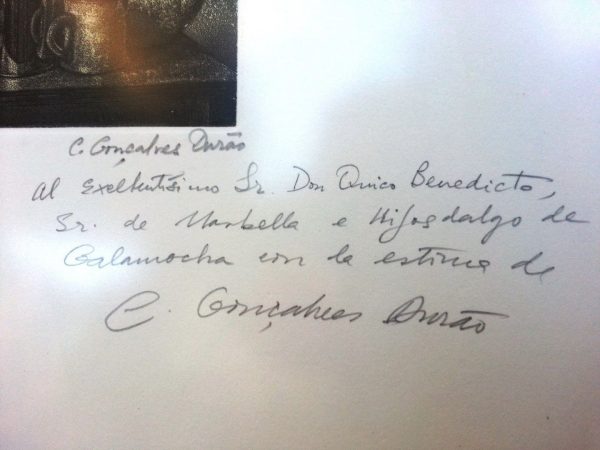 C. Gonçalves Durão
Al Exelentísimo Sr. Don Quico Benedicto,
Sr. de Marbella e Hijosdalgo de
Calamocha con la estima de
C. Gonçalves Durão